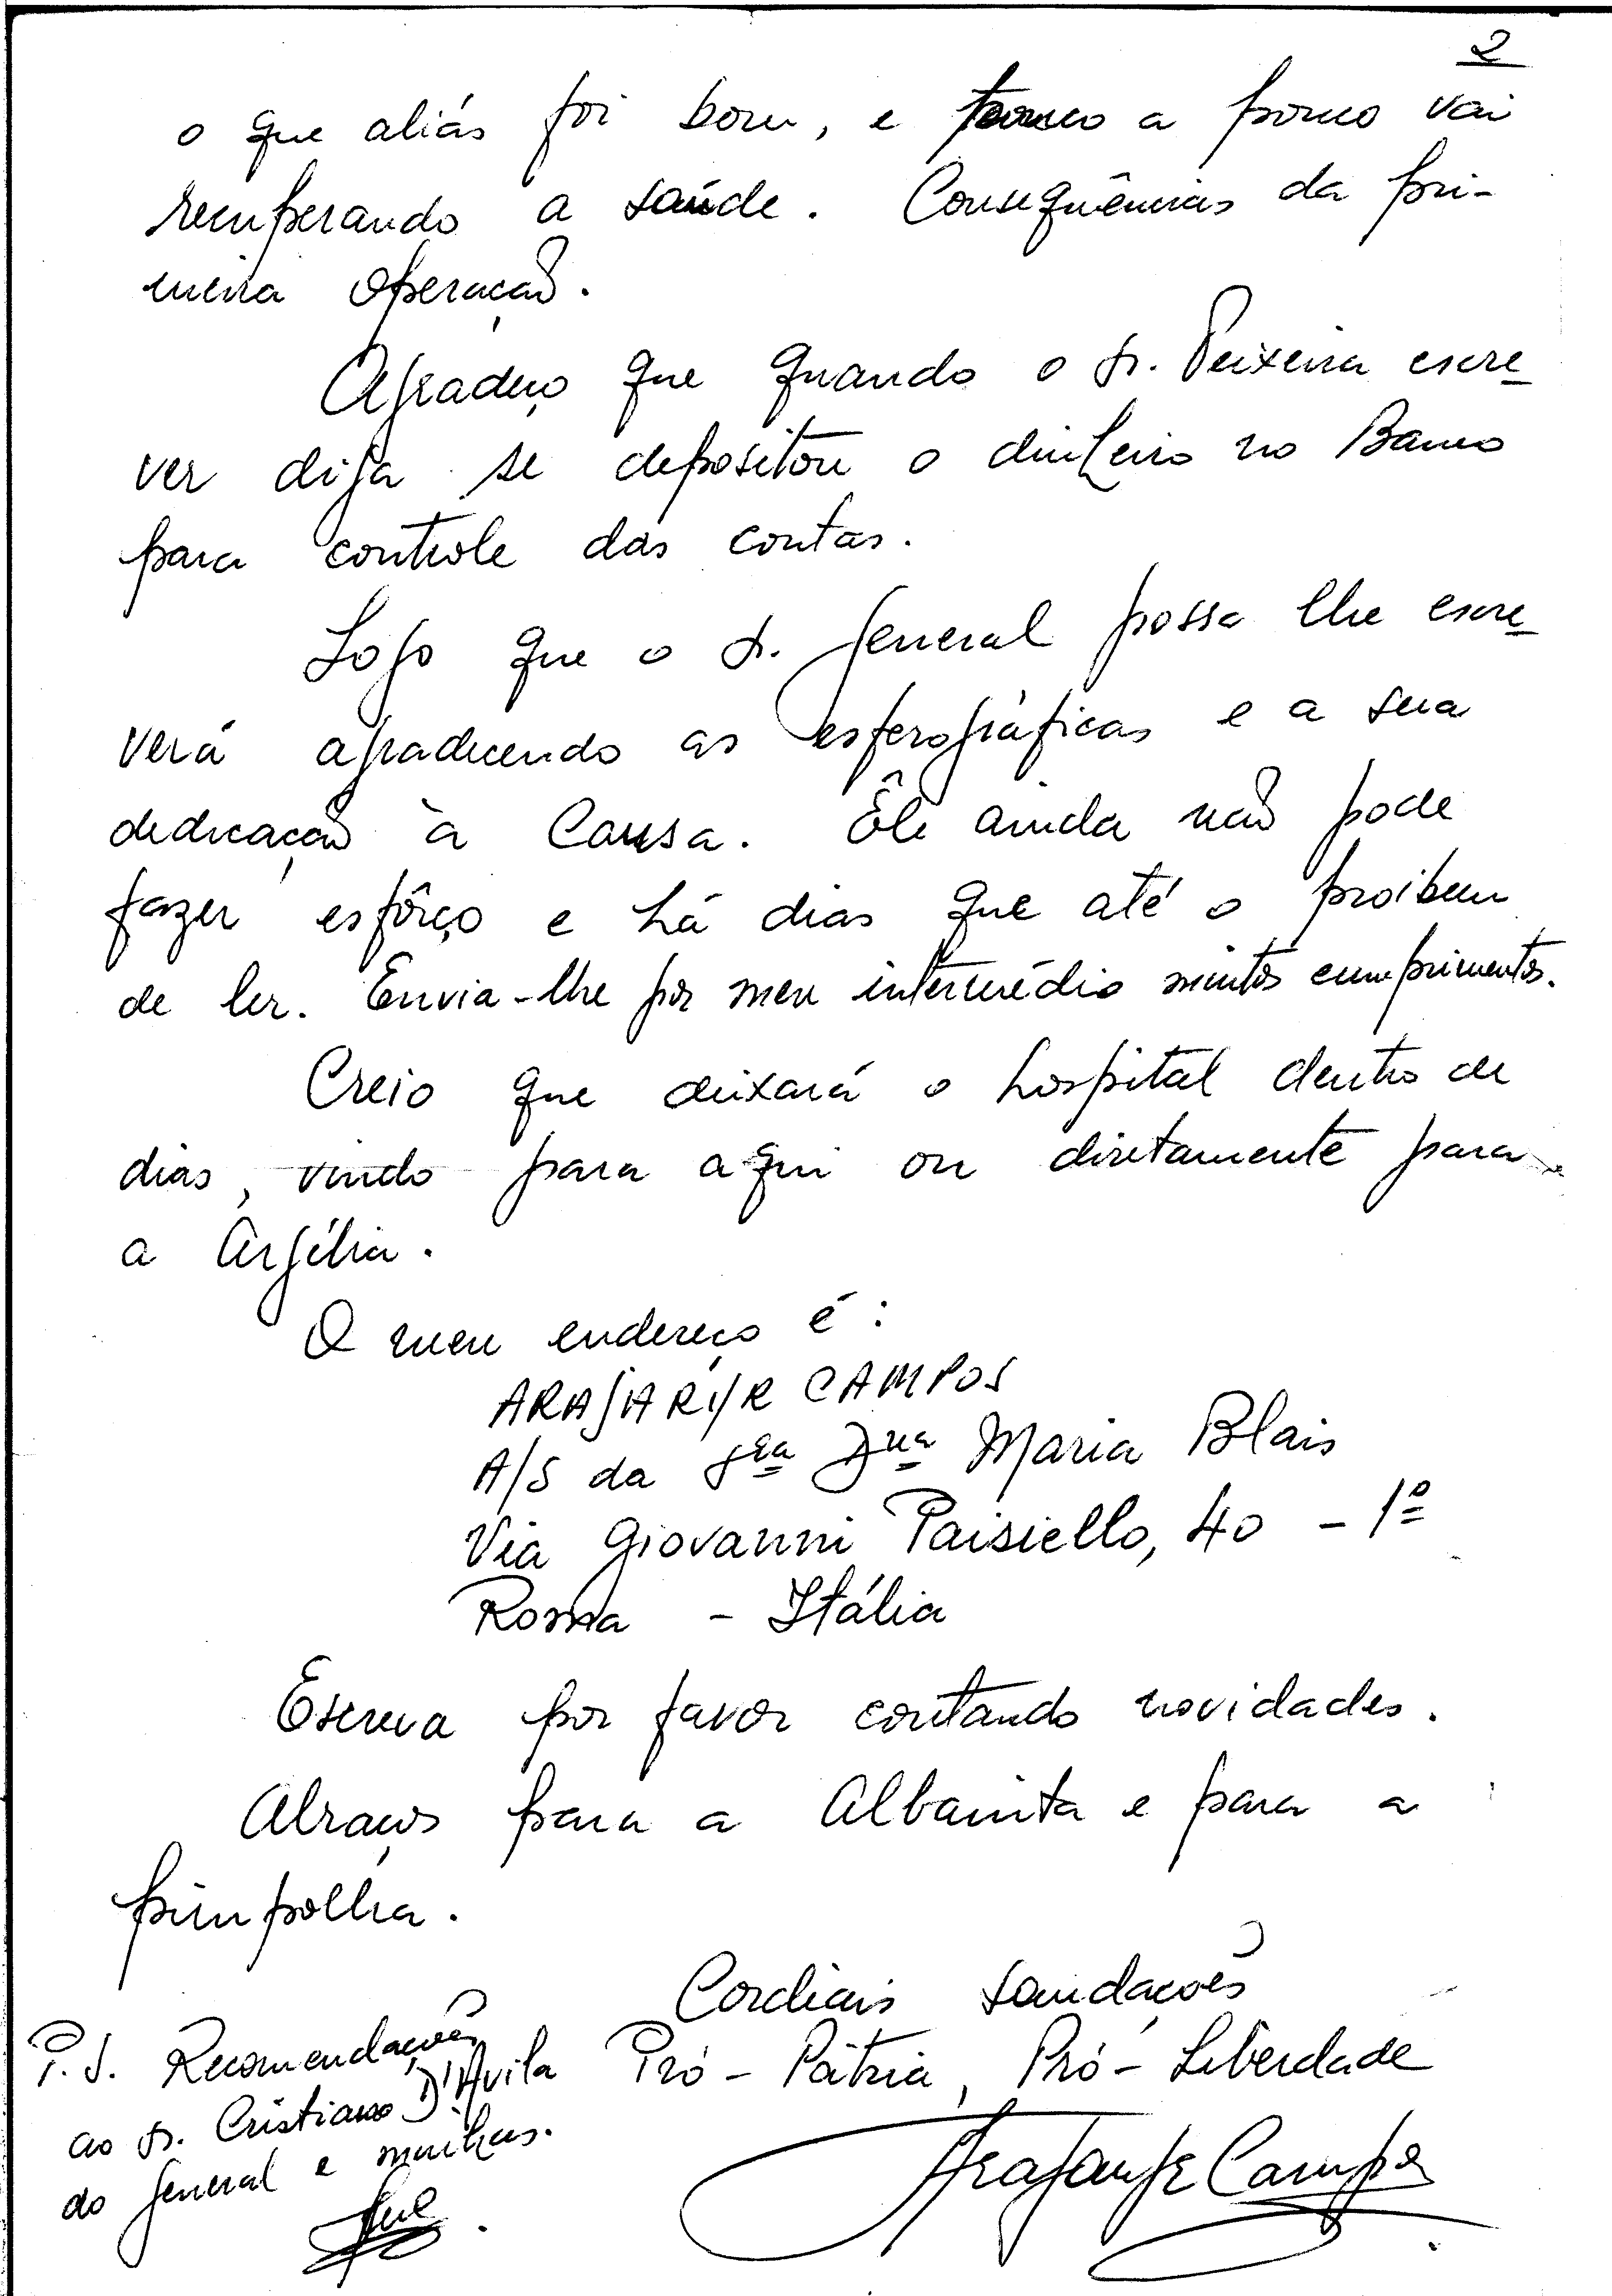 2
o que aliás foi bom, e pouco a pouco vai
recuperando a saúde. Consequências da pri-
meira operação.
Agradeço que quando o sr. Teixeira escre-
ver diga se depositou o dinheiro no Banco
para controle das contas.
Logo que o sr. general possa lhe escre-
verá agradecendo as esferográficas e a sua
dedicação à Causa. Êle ainda não pode
fazer esfôrço e há dias que até o proibem
de ler. Envia-lhe por meu intermédio muitos cumprimentos.
Creio que deixará o hospital dentro de
dias, vindo para aqui ou diretamente para
a Argélia.
O meu endereço é:
ARAJARYR CAMPOS
A/S da Sra Dna Maria Blais
Via Giovanni Paisiello, 40 - 1º
Roma - Itália
Escreva por favor contando novidades.
Abraços para a Albanita e para a
pimpolha.
Cordiais saudações
Pró-Pátria, Pró-Liberdade
Arajaryr Campos
P.S. Recomendações
ao sr. Cristiano D'Avila
do general e minhas.